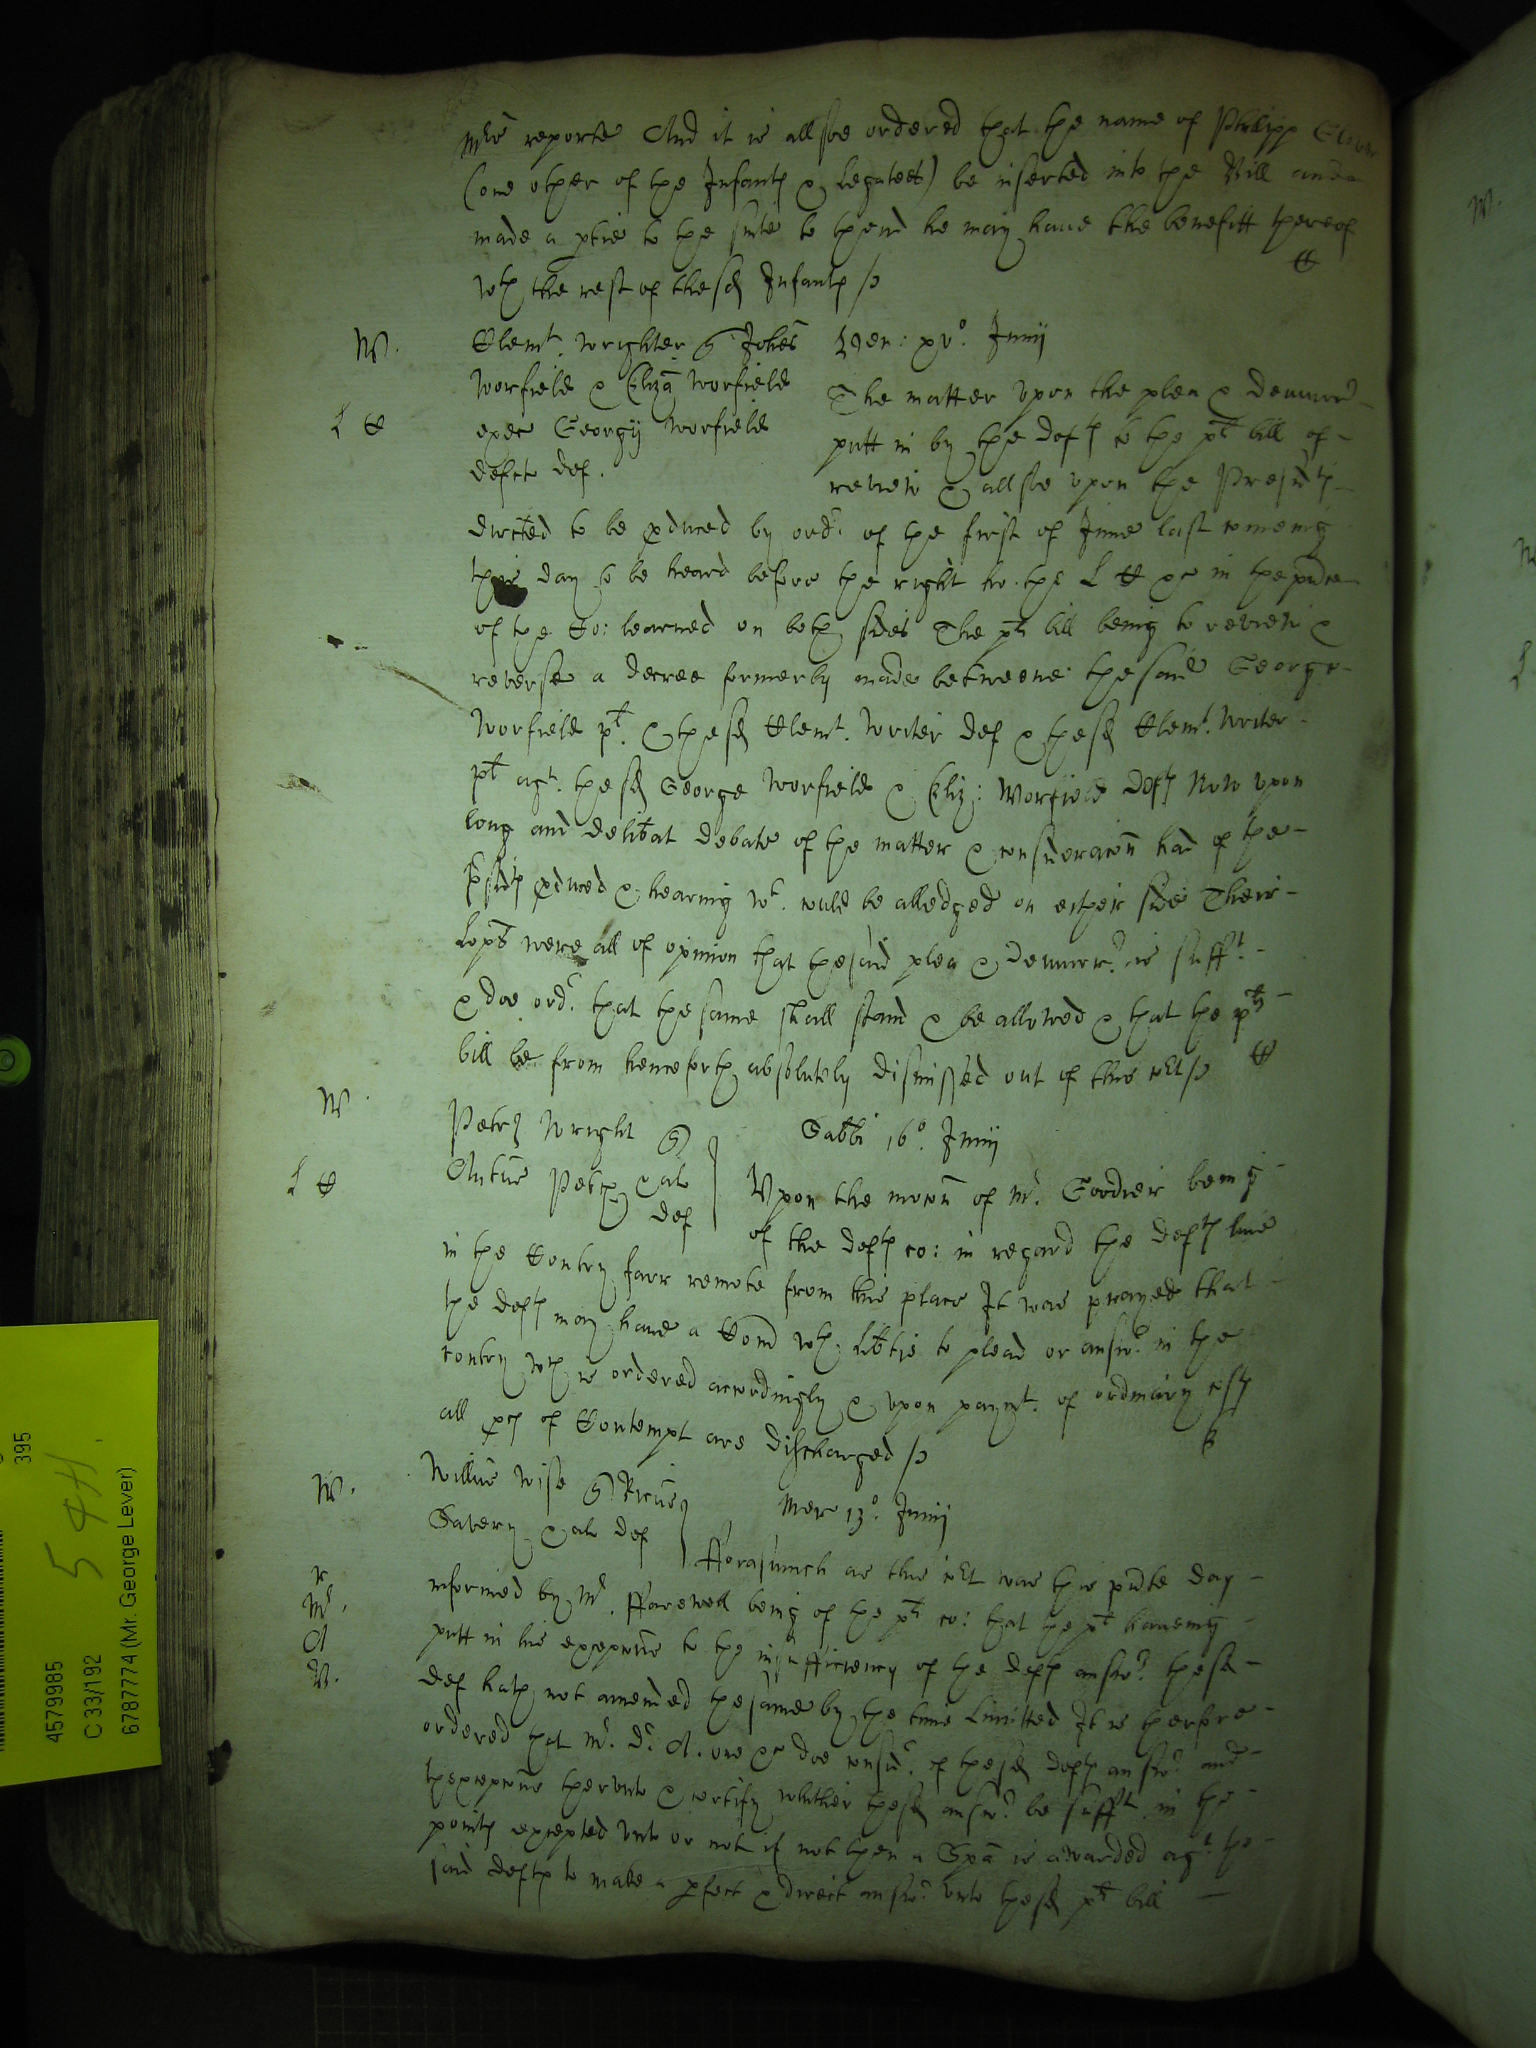 Mrs reporte And it is allsoe ordered that the name of Phillipp
(one other of the Infants & Legatees) be inserted into the Bill and
made a ptie to the suite to thend he may have the benefitt thereof
wth the rest of thesd Infants
W.
Clemt. Wrighter Johes
Worfield & Eliza Worfield
L C
exec Georgij Worfield
defct def.
Ven: xv° Junij
The matter upon the plea & demurr
putt in by the defts to the plts bill of
review & allsoe upon the Presidts
directed to be pduced by ordr of the first of June last comeing
this day to be heard before the right ho. the L C &c in the pñce
of the Co: learned on both sides The plts bill being to review &
reverse a decree formerly made betweene the said George
Worfield plt. & thesd Clemt. Writer def & thesd Clemt. Writer
plt agt. thesd George Worfield & Eliz: Worfield defts Now upon
long and delibat debate of the matter & consideracon had of the
psidts pduced & hearing wt. could be alledged on either side Their
Lopps were all of opinion that thesaid plea & demurr. is sufft.
& doe ordr. that the same shall stand & be allowed & that the plts
bill be from henceforth absolutely dismissed out of this crt C
W.
Petrs Wright
L C
Petre & al
def
Sabbi 16° Junij
Upon the mocon of Mr. Goodier being
of the defts co: in regard the defts live
in the Contry farr remote from this place It was prayed that
the defts may have a Comd wth libtie to plead or answr. in the
contry wch is ordered accordingly & upon paymt. of ordinary costs
all pcs of Contempt are discharged
W.
Willus Wise Ricus
Savery & al def
Mer 13° Junij
Forasmuch as this crt was this pñte day
r
Mr.
A
B.
informed by Mr. Farewell being of the plts co: that the plt haveing
putt in his excepcons to the insufficiency of the defts answr. thesd
def hath not amended thesame by the time limitted It is therfore
ordered that Mr. Dr. A. one &c doe considr. of thesd defts answr. and
thexcepcons therunto & certify whither thesd answr. be sufft. in the
points excepted unto or not if not then a Spa is awarded agt. the
said defts to make a pfect & direct answr. unto thesd plts bill
395
5 4H.
4579985
C 33/192
6787774 (Mr. George Lever)